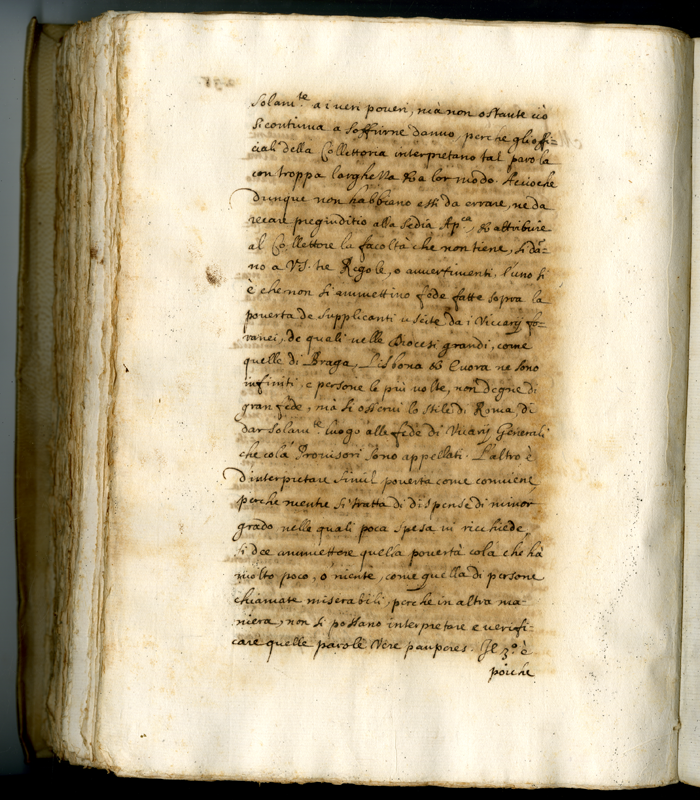 Solamte. a i veri poveri, mà non ostante ciò
si continua a soffrirne danno, perche gli offi=
ciali della Collettoria interpretano tal parola
con troppa larghezza & a lor modo. Accioche
dunque non habbiano essi da errare, ne da
recare pregiuditio alla Sedia Apca., & attribuire
al Collettore la facoltà che non tiene, si dan=
no a V.S. tre Regole, o avvertimenti. l'uno si
è che non si ammettino fede fatte sopra la
povertà de supplicanti uscite da i Vicarij fo=
ranei, de quali nelle Diocesi grandi, come
quelle di Braga, Lisbona & Evora ne sono
infiniti, e persone le più volte, non degne di
gran fede, mà si osservi lo stile di Roma, di
dar solamte. luogo alle fede di Vicarij Generali
che colà Provisori sono appellati. L'altro è
d'interpretare simil povertà come conviene
perche mentre si tratta di dispense di minor
grado nelle quali poca spesa vi ricchiede,
si dee ammettere quella povertà colà che hà
molto poco, ò niente, come quella di persone
chiamate miserabili, perche in altra ma=
niera, non si possano interpretare e verifi=
care quelle parole Vere pauperes. Il 3.o è
poiche